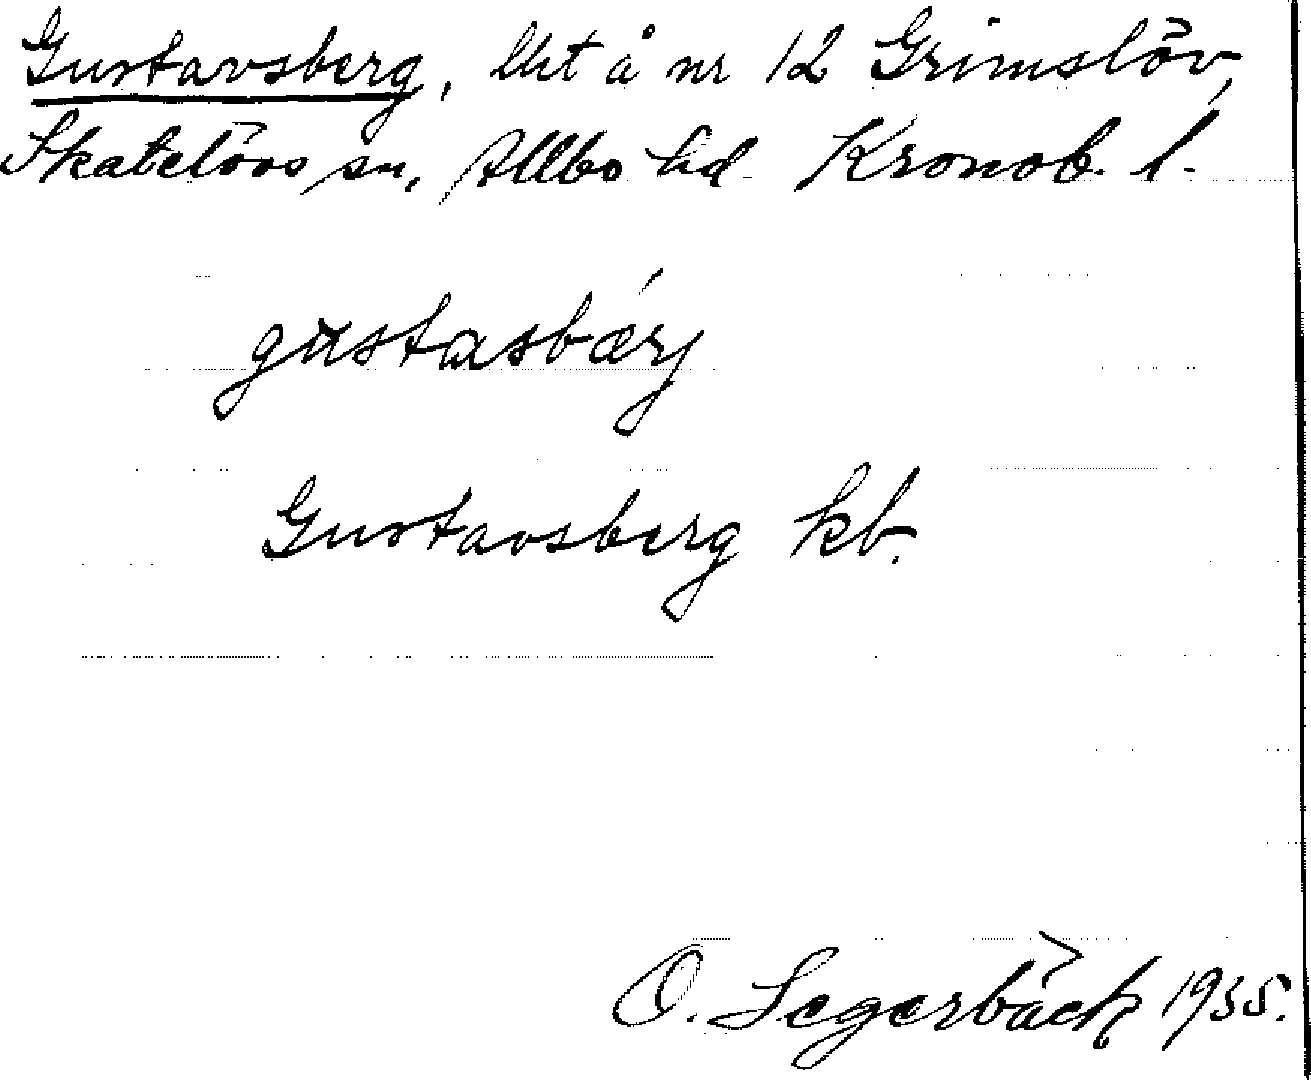 Gustavsberg, lht å nr 12 Grimslöv,
Skatelövs sn, Allbo hd. Kronob. l.
gustasbærj
Gustavsberg kb.
O. Segerbäck 1935.